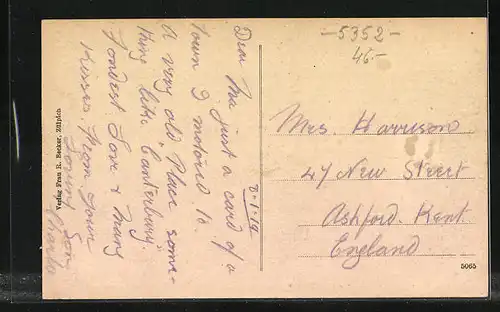 Dear Ma just a card of a
town I motored to
A very old Place some-
thing like Canterbury.
Fondest Love & Many
Kisses From Your
Loving Son
Charlie
Verlag Frau R. Becker, Zülpich
-5352-
46-
Mrs Harrison
47 New Street
Ashford. Kent
England
5065